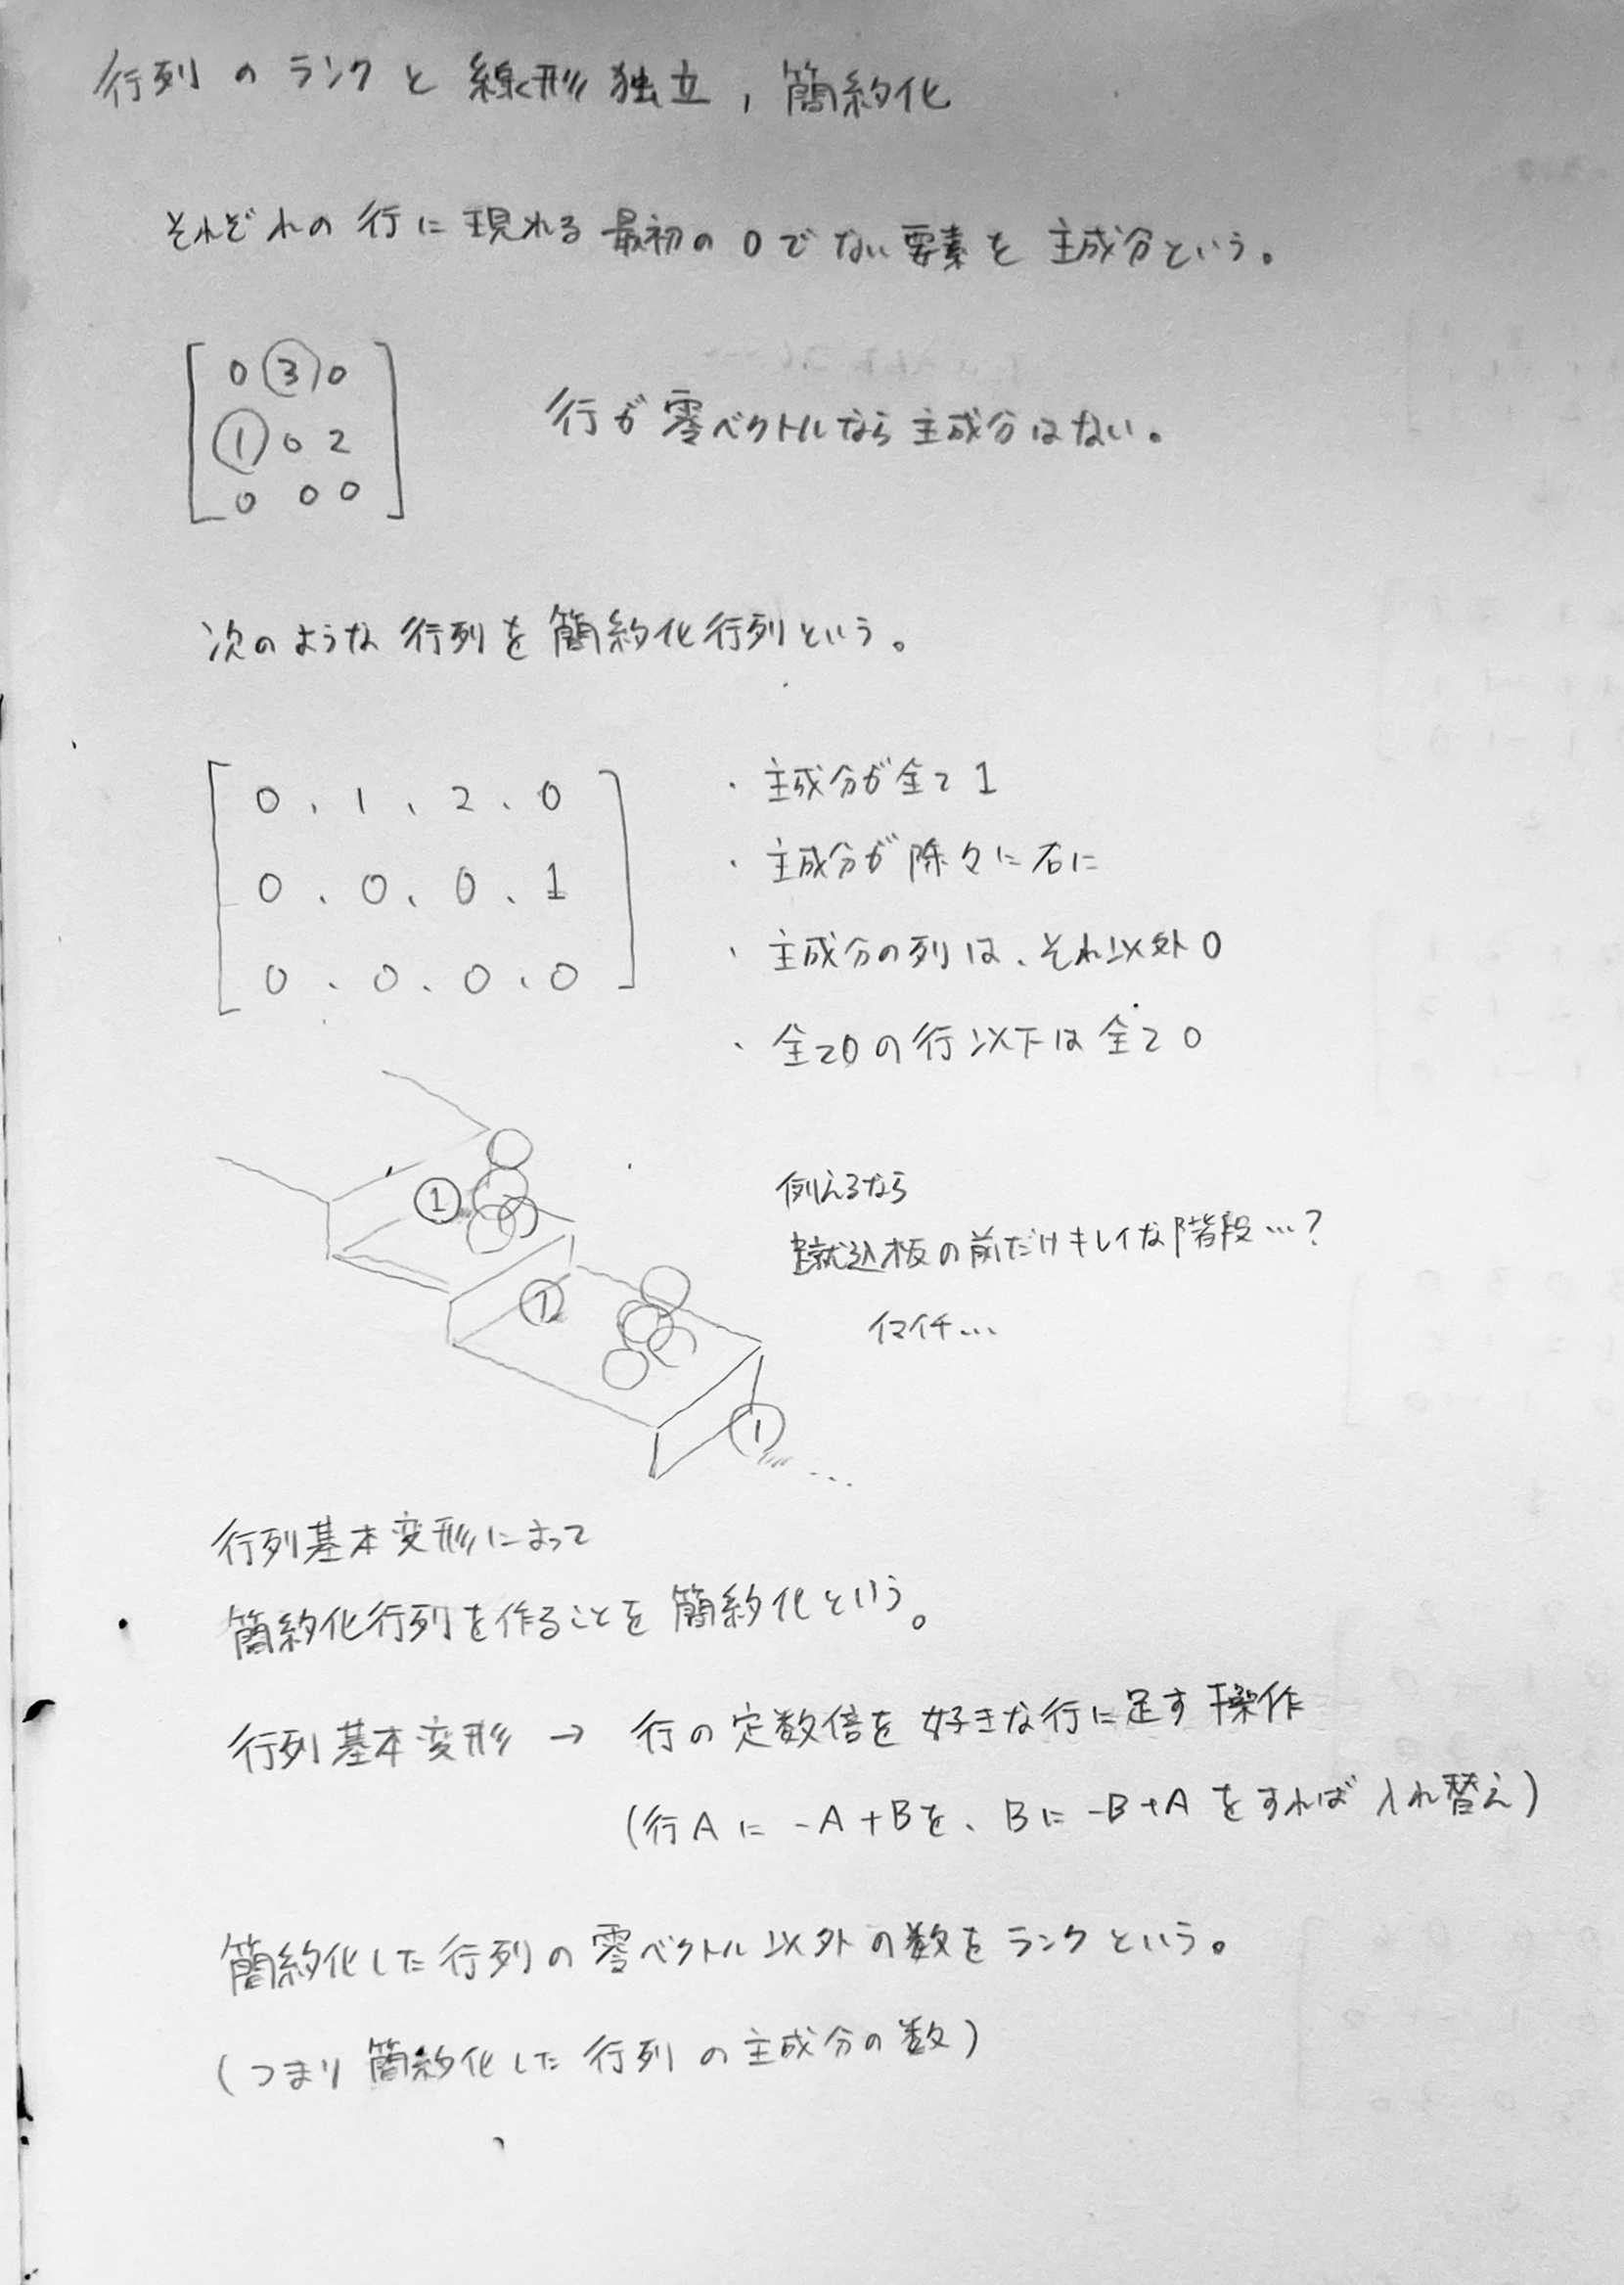 行列のランクと線形独立,簡約化
それぞれの行に現れる最初の0でない要素を主成分という。
0 3 0
1 0 2
0 0 0
行が零ベクトルなら主成分はない。
次のような行列を簡約化行列という。
0、1、2、0
0、0、0、1
0、0、0、0
・主成分が全て1
・主成分が除々に右に
・主成分の列は、それ以外0
・全て0の行以下は全て0
1
1
1
...
例えるなら
蹴込板の前だけキレイな階段…?
イマイチ…
行列基本変形によって
簡約化行列を作ることを簡約化という。
行列基本変形→行の定数倍を好きな行に足す操作
(行Aに-A+Bを、Bに-B+Aをすれば入れ替え)
簡約化した行列の零ベクトル以外の数をランクという。
(つまり簡約化した行列の主成分の数)